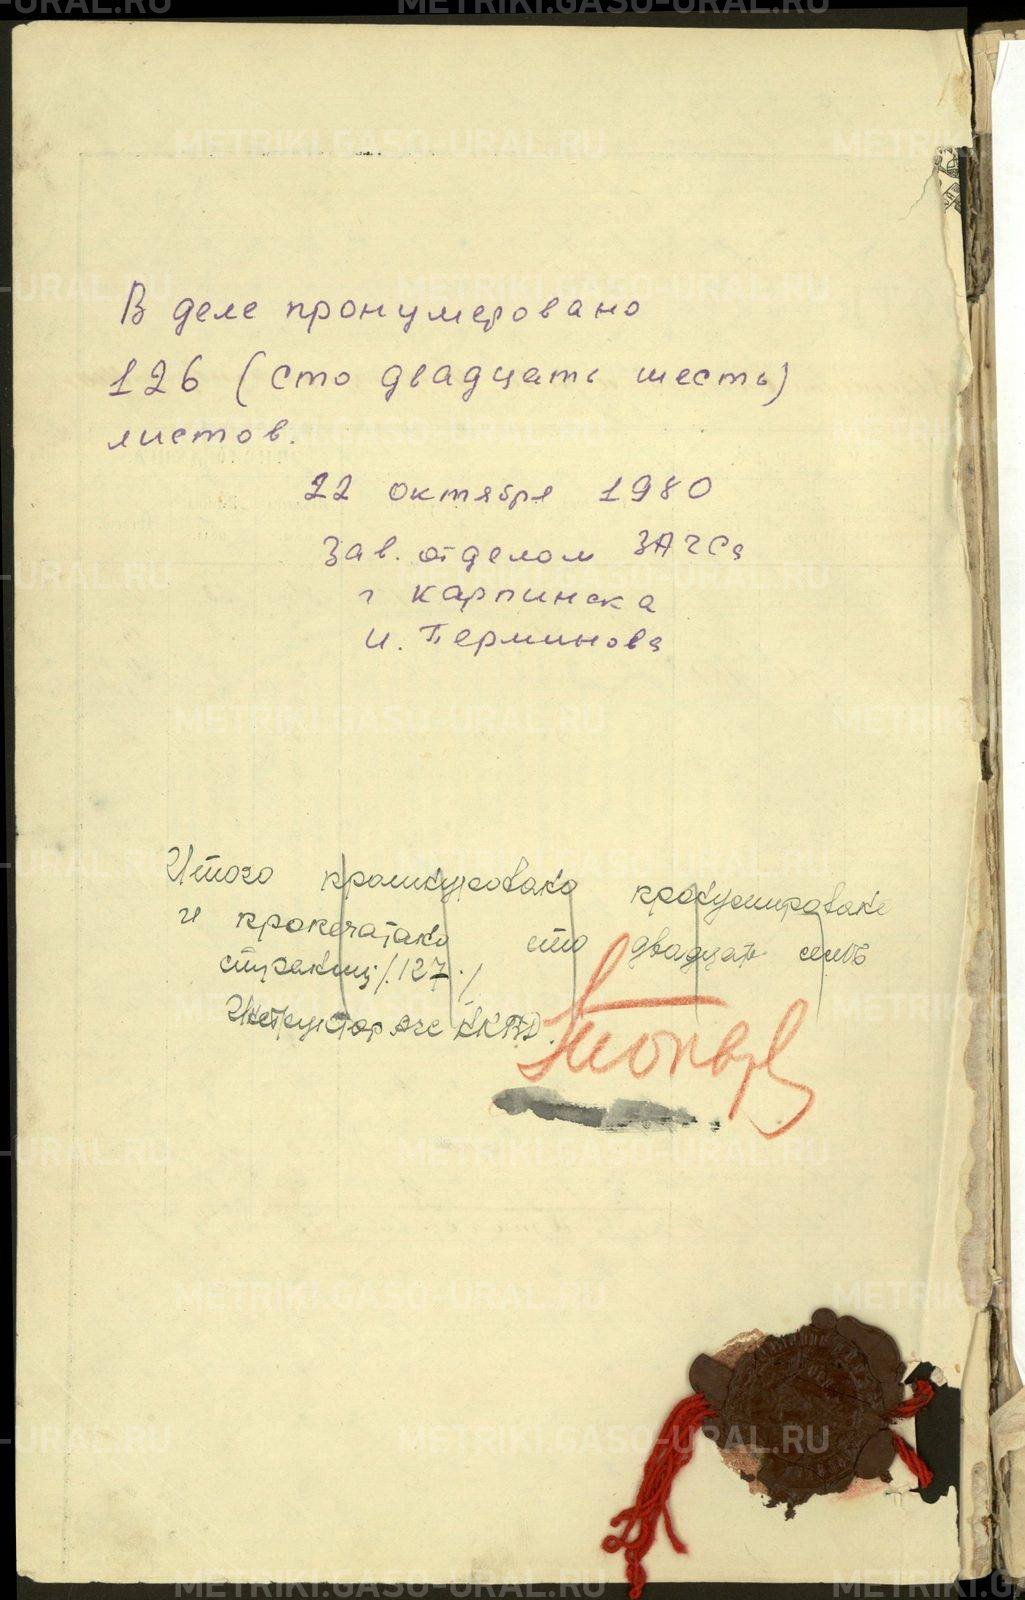 В деле пронумеровано
126 (сто двадцать шесть)
листов.
22 октября 1980
Зав. отделом ЗАГСа
г Карпинска
И. Перминова
Итого прошнуровано пронумировано
и пропечатано сто двадцать семь
страниц /127./
НКВД.
METRIKI.GASO-URAL.RU